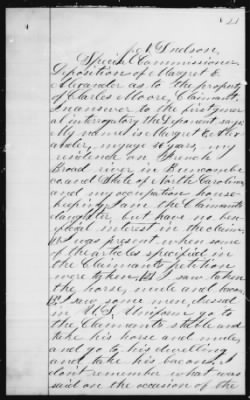 Special Commissioner
Deposition of Margret E
Alexander as to the property
of Charles Moore, Claimant.
In answer to the first gener
al interrogatory the Deponent says
My name is Margret E Alex
ander, my age years, my
residence on French
Broad river in Buncombe
co and State of North Carolina
and my occupation house
keeping I am the Claimants
daughter, but have no ben
eficial interest in the claim,
I was present when some
of the articles specified in
the Claimants petition
were taken I saw taken
the horse, mule and bacon,
I saw some men, dressed
in U.S. Uniform go to
the Claimants stable and
take his horse and mule,
and go to his dwelling
and take his bacon, I
don't remember what was
said on the occasion of the